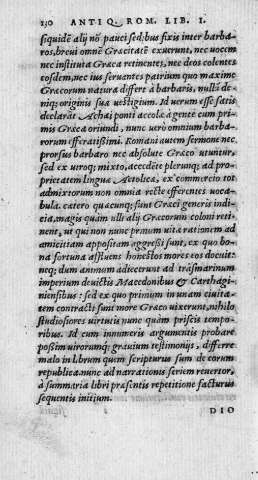 130 ANTIQ. ROM. LIB. I.
siquidē alij nō pauci sed; bus fixis inter barba-
ros, breui omnē Græcitatē exuerunt, nec uocem
nec instituta Græca retinentes, nec deos colentes
eosdem, nec ius seruantes patrium quo maxime
Græcorum natura differt à barbaris, nulli deniq;
originis suæ uestigium. Id uerum esse satis
declarāt Achæi ponti accolæ à gente cum pri-
mis Græca oriundi, nunc uero omnium barba-
rorum efferatißimi. Romani autem sermone nec
prorsus barbaro nec absolute Græco utuntur,
sed ex utroq; mixto, accedēte plerunq; ad pro-
prietatem linguæ Aeolicæ, ex commercio tot
admixtorum non omnia recte efferentes uoca-
bula. cætero quacunq; sunt Græci generis indi-
cia, magis quàm ulli alij Græcorum coloni reti-
nent, ut qui non nunc primùm uitæ rationem ad
amicitiam appositam aggreßi sunt, ex quo bo-
na fortuna affluens honestos mores eos docuit:
necq; dum animum adiecerunt ad trāsmarinum
imperium deuictis Macedonibus & Carthagi-
niensibus: sed ex quo primùm in unam ciuita-
tem contracti sunt more Græco uixerunt, nihilo
studiosiores uirtutis nunc quàm priscis tempo-
ribus. Id cum innumeris argumentis probare
poßim uirorumq; grauium testimonijs, differre
malo in librum quem scripturus sum de eorum
republica. nunc ad narrationis seriem reuertor,
à summaria libri præsentis repetitione facturus
sequentis initium.
DIO